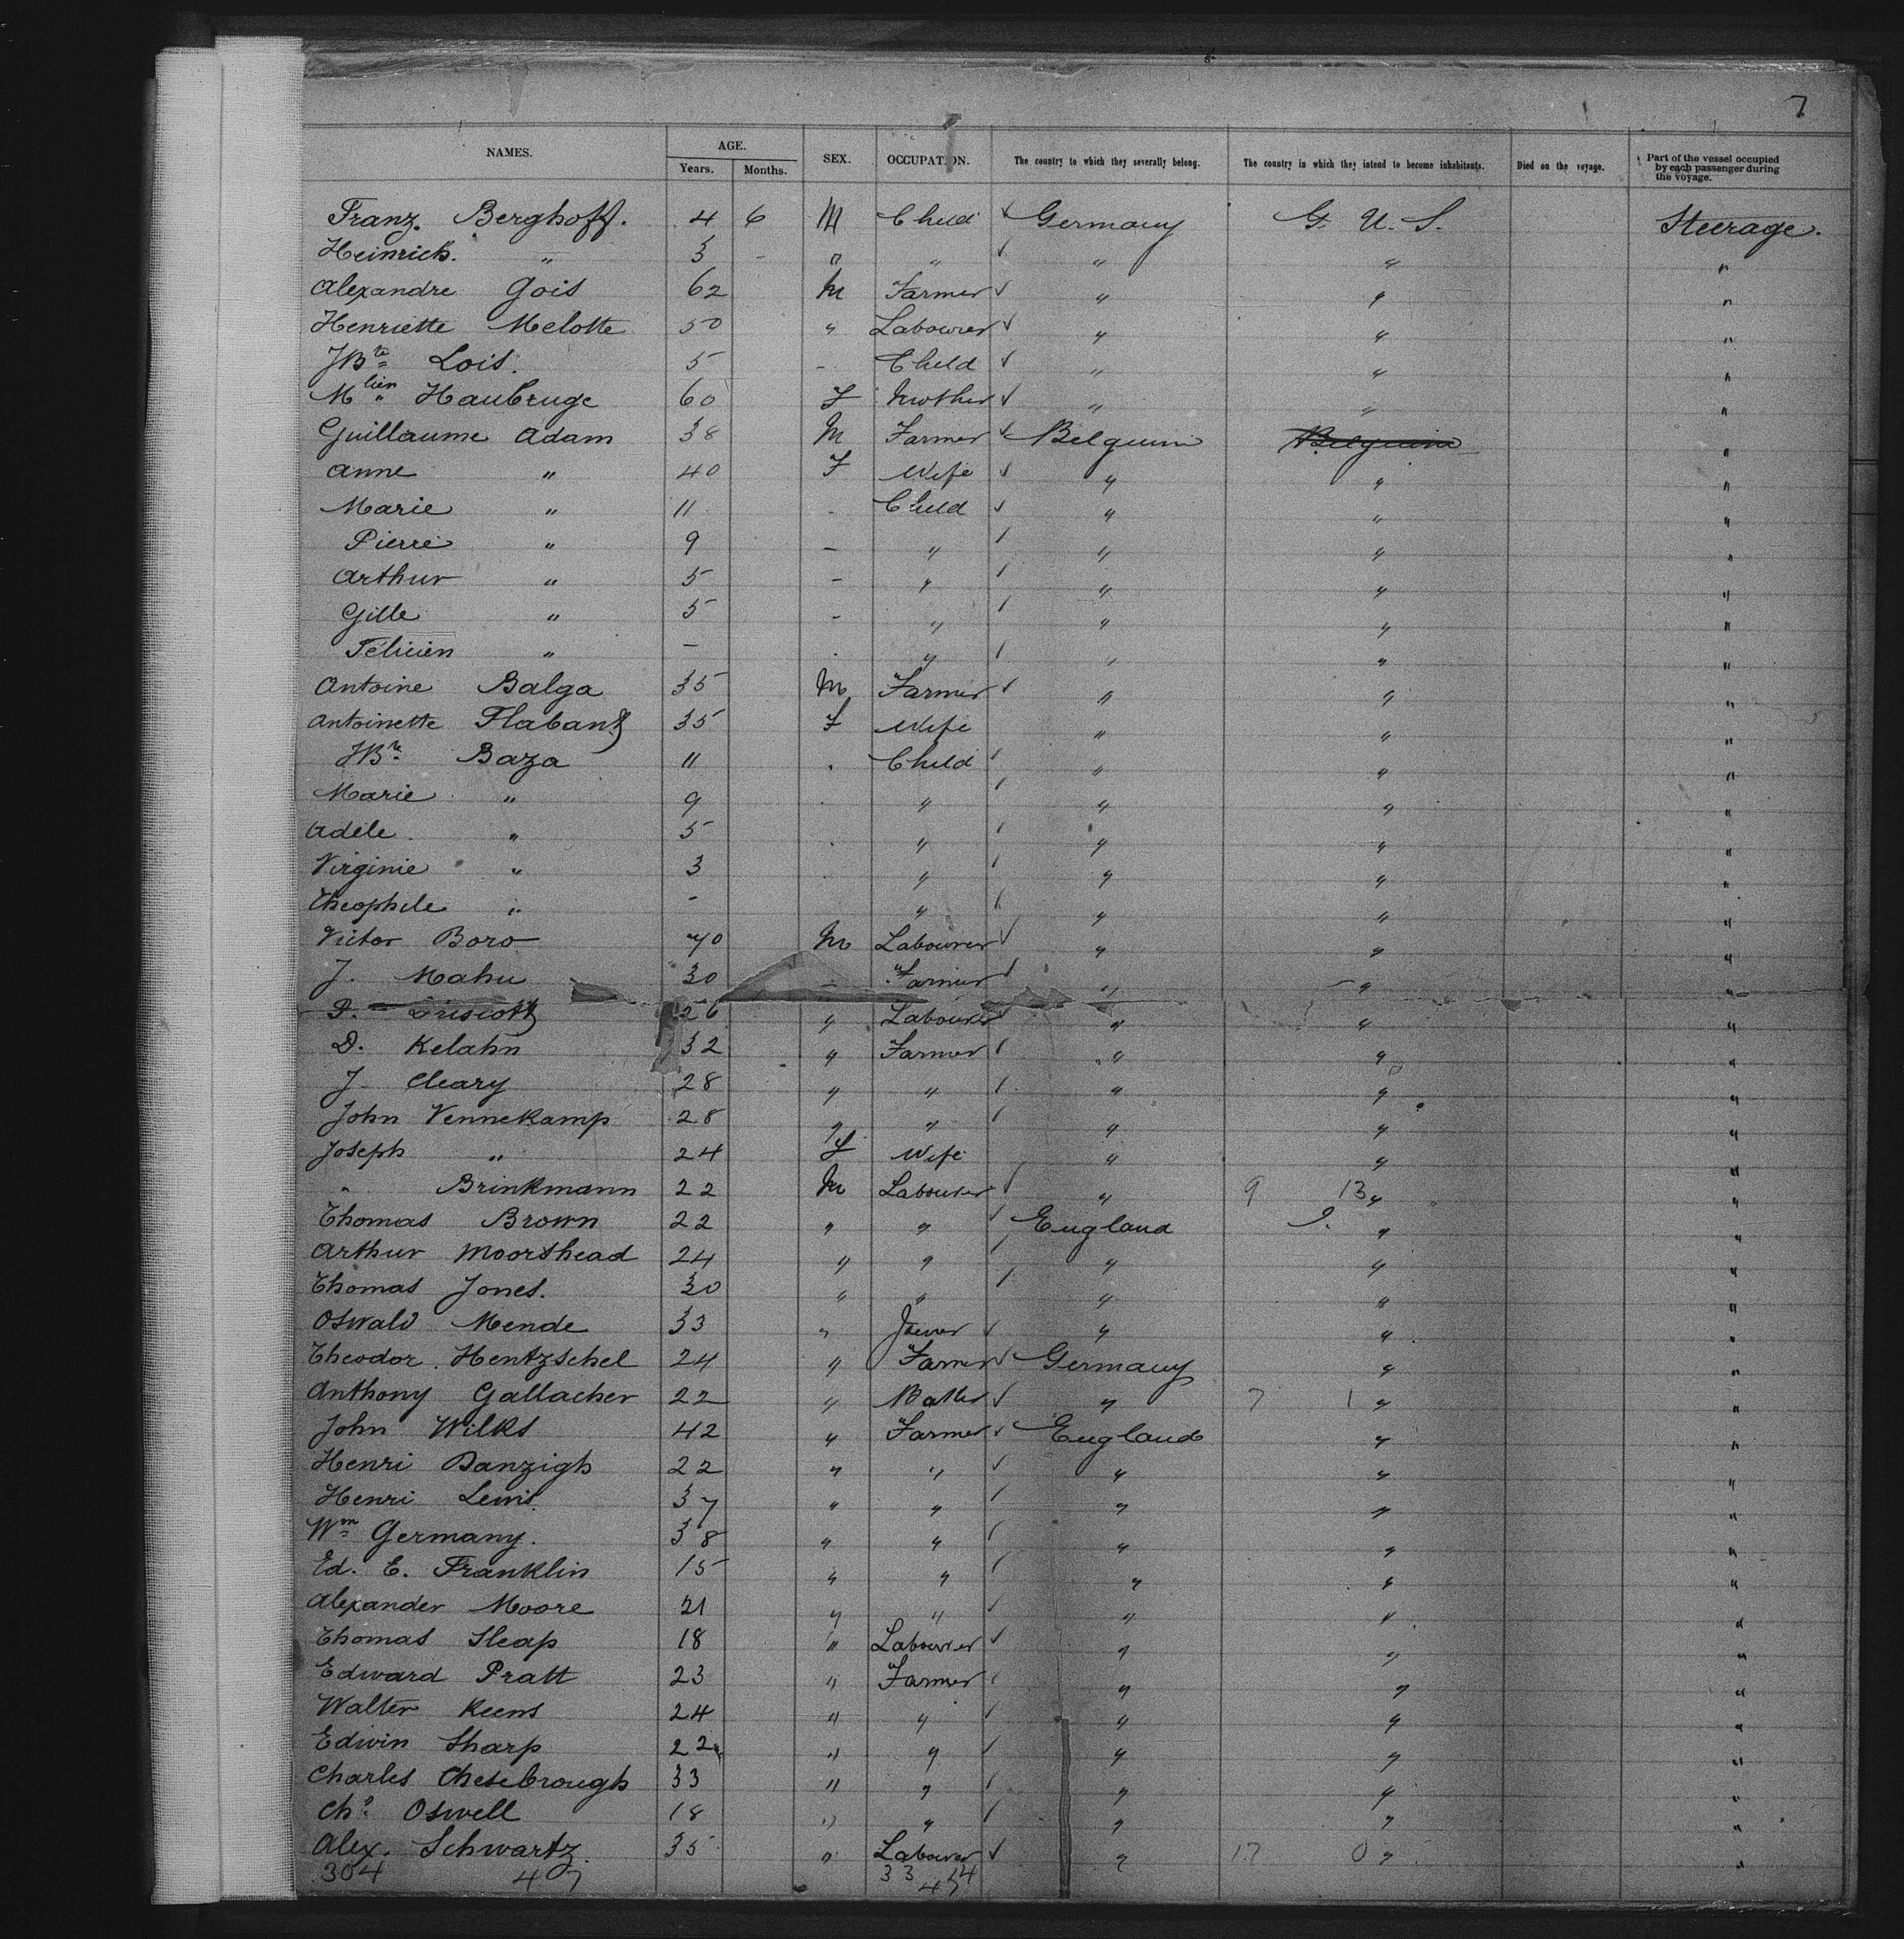 7
NAMES. AGE. SEX. OCCUPATION. The country to which they severally belong. The country in which they intend to become inhabitants. Died on the voyage. Part of the vessel occupied by each passenger during the voyage.
Years. Months.
Franz. Berghoff. 4 6 M Child Germany G. U. S. Steerage.
Heinrich. " 3 - " " " " "
Alexandre Gois 62 M Farmer " " "
Henriette Melotte 50 " Labourer " " "
JBte Lois. 5 - Child " " "
Mlien Haubruge 60 F Mother " " "
Guillaume Adam 38 M Farmer Belguim Belguim "
Anne " 40 F Wife " " "
Marie " 11 - Child " " "
Pierre " 9 - " " " "
Arthur " 5 - " " " "
Gille " 5 - " " " "
Félicien " - " " " "
Antoine Balga 35 M Farmer " " "
Antoinette 35 F Wife " " "
JBte Baza 11 Child " " "
Marie " 9 " " " "
Adele " 5 " " " "
Virginie " 3 " " " "
Theophile " - " " " "
Victor Boro 40 M Labourer " " "
J. Mahu 30 - Farmer " " "
P. Driscott 26 " Labourer " " "
D. Kelahn 32 " Farmer " " "
J. Cleary 28 " " " " "
John Vennekamp 28 " " " " "
Joseph " 24 F Wife " " "
" Brinkmann 22 M Labourer " 9 13 " "
Thomas Brown 22 " " England " "
Arthur Moorshead 24 " " " " "
Thomas Jones. 30 " " " " "
Oswald Mende 33 " Joener " " "
Theodor. Hentzschel 24 " Farmer Germany " "
Anthony Gallacher 22 " " 7 1 " "
John Wilks 42 " Farmer England " "
Henri Danzigh 22 " " " " "
Henri Lewis. 37 " " " " "
Wm Germany. 38 " " " " "
Ed. E. Franklin 15 " " " " "
Alexander Moore 21 " " " " "
Thomas Sleap 18 " Labourer " " "
Edward Pratt 23 " Farmer " " "
Walter Keens 24 " " " " "
Edwin Sharp 22 " " " " "
Charles Chesebrough 33 " " " " "
Chs Oswell 18 " " " " "
Alex. Schwartz. 35 " Labourer " 17 0 " "
304 47 33 14
47